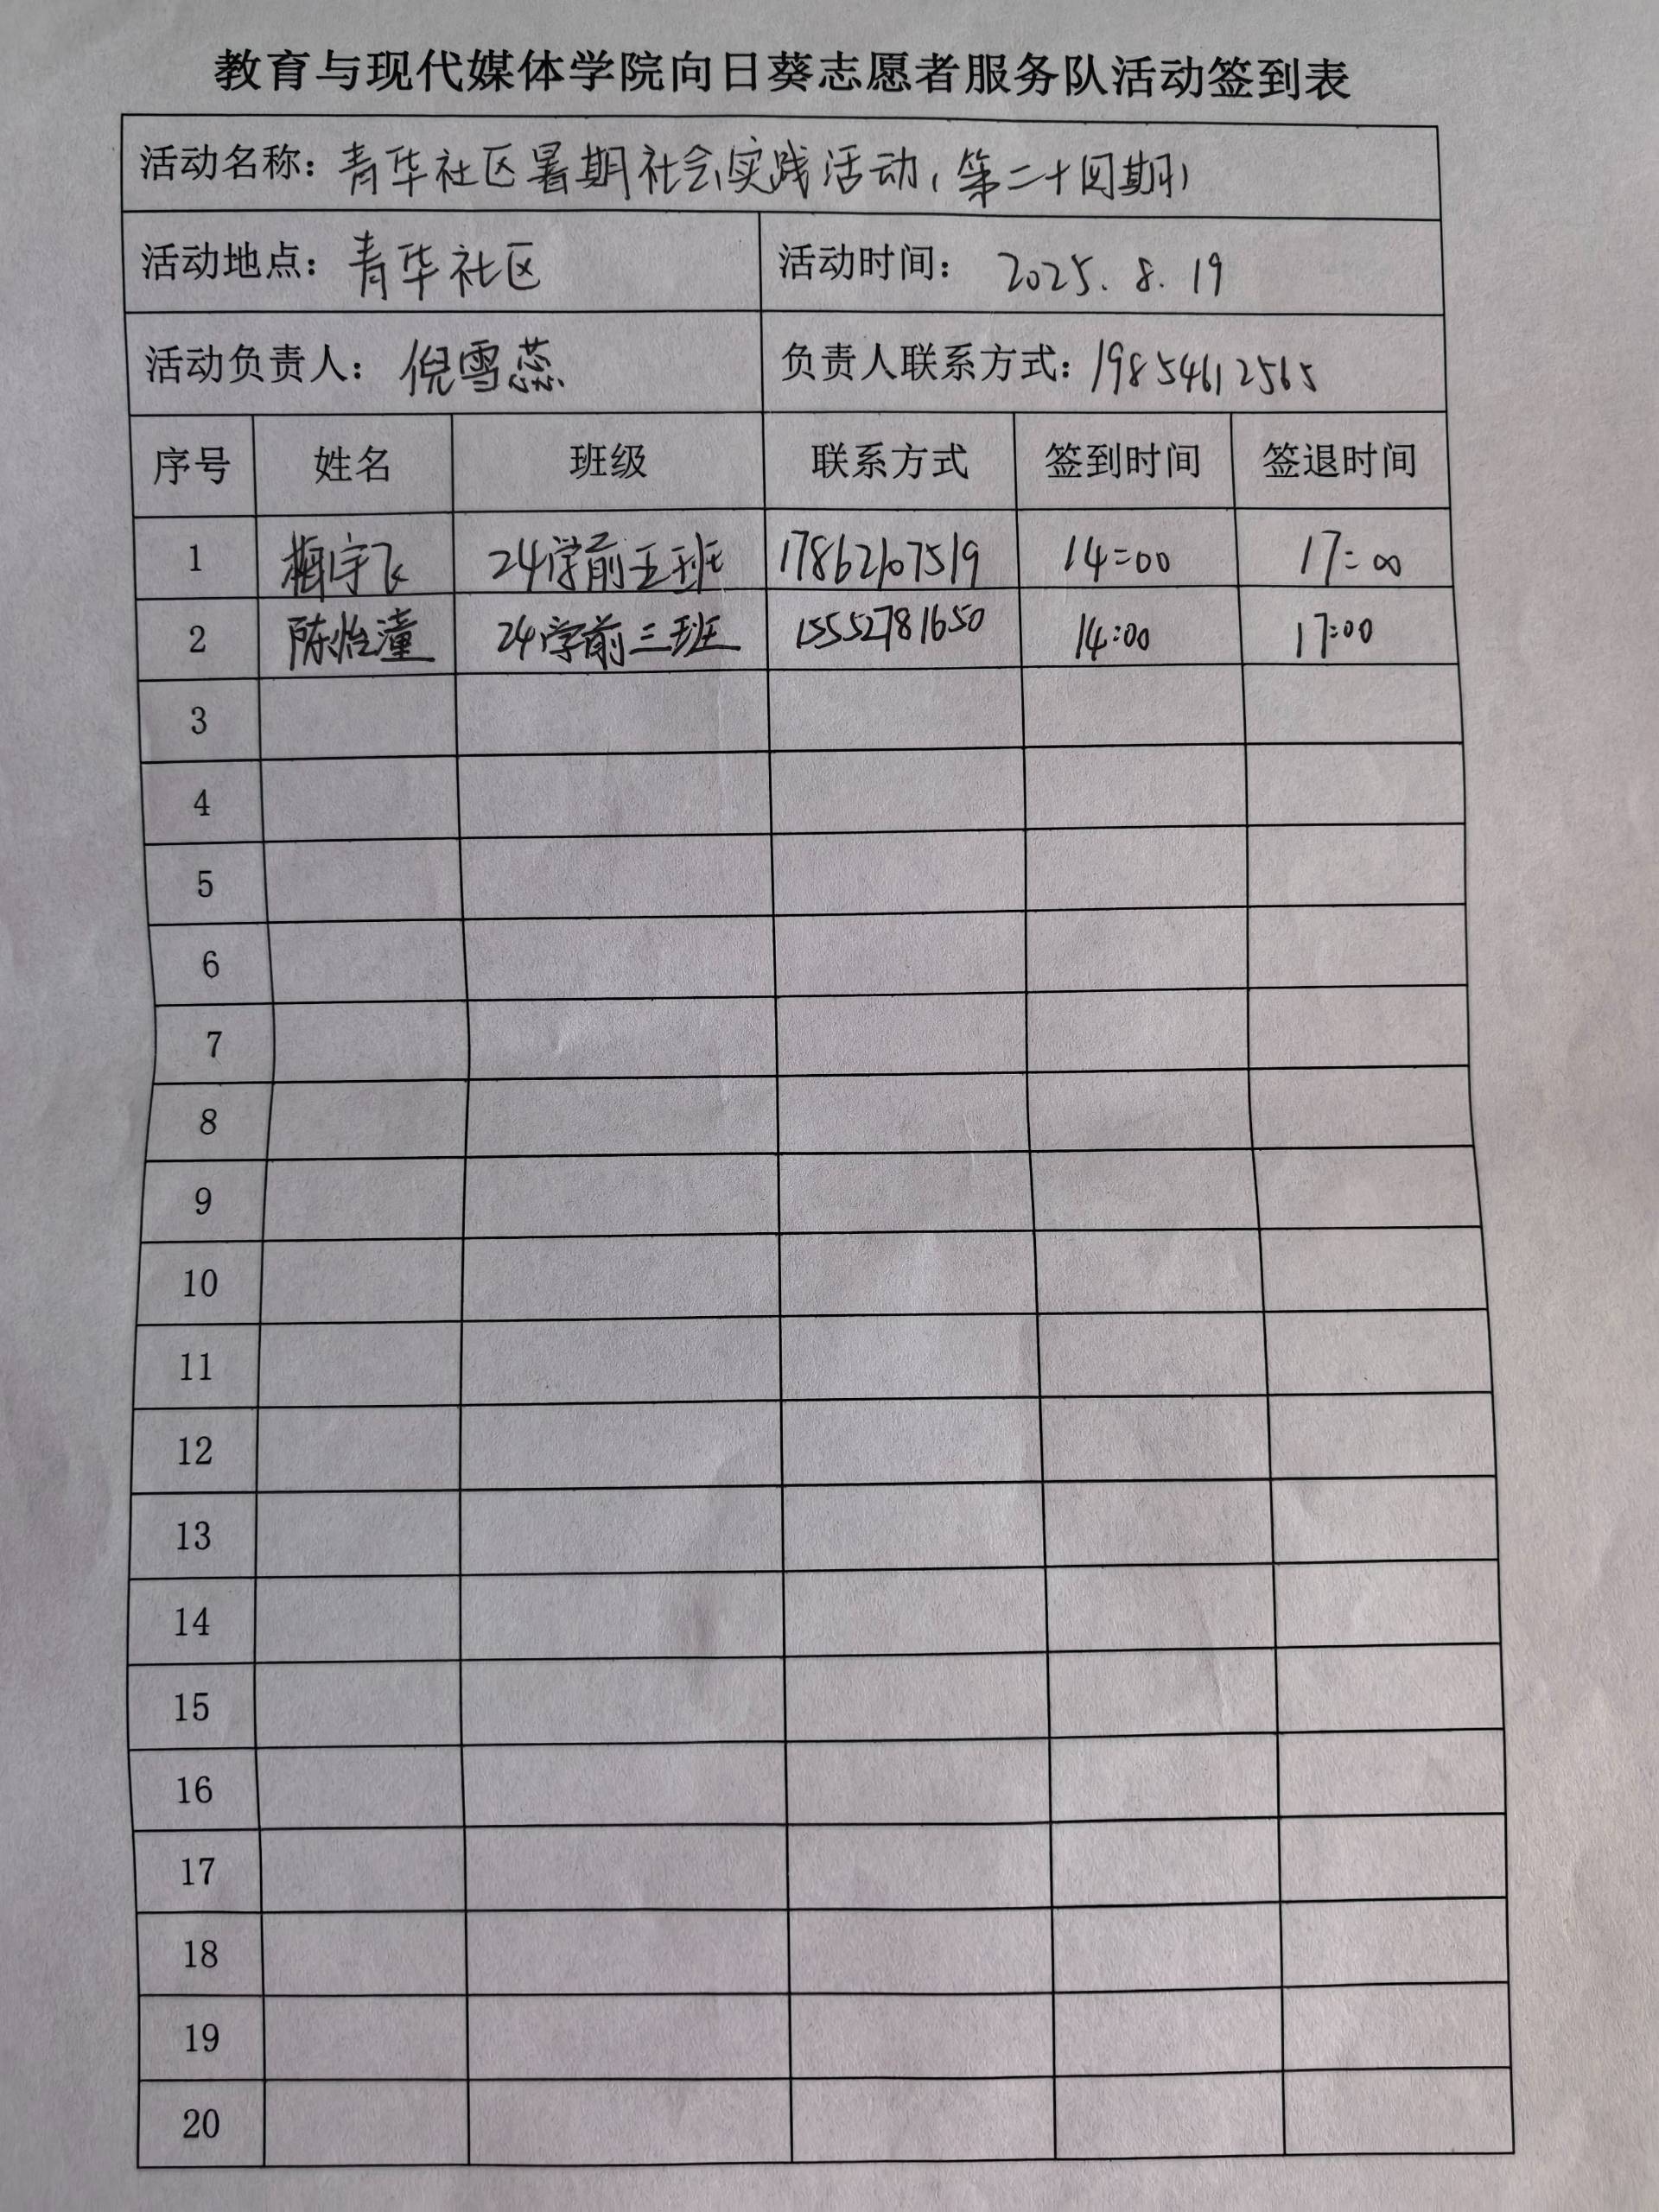 教育与现代媒体学院向日葵志愿者服务队活动签到表
活动名称：青华社区暑期社会实践活动（第二十四期）
活动地点：青华社区 活动时间：2025.8.19
活动负责人：倪雪蕊 负责人联系方式：19854612565
序号 姓名 班级 联系方式 签到时间 签退时间
1 宇飞 24学前五班 17862107519 14:00 17:00
2 陈怡潼 24学前三班 15552781650 14:00 17:00
3
4
5
6
7
8
9
10
11
12
13
14
15
16
17
18
19
20